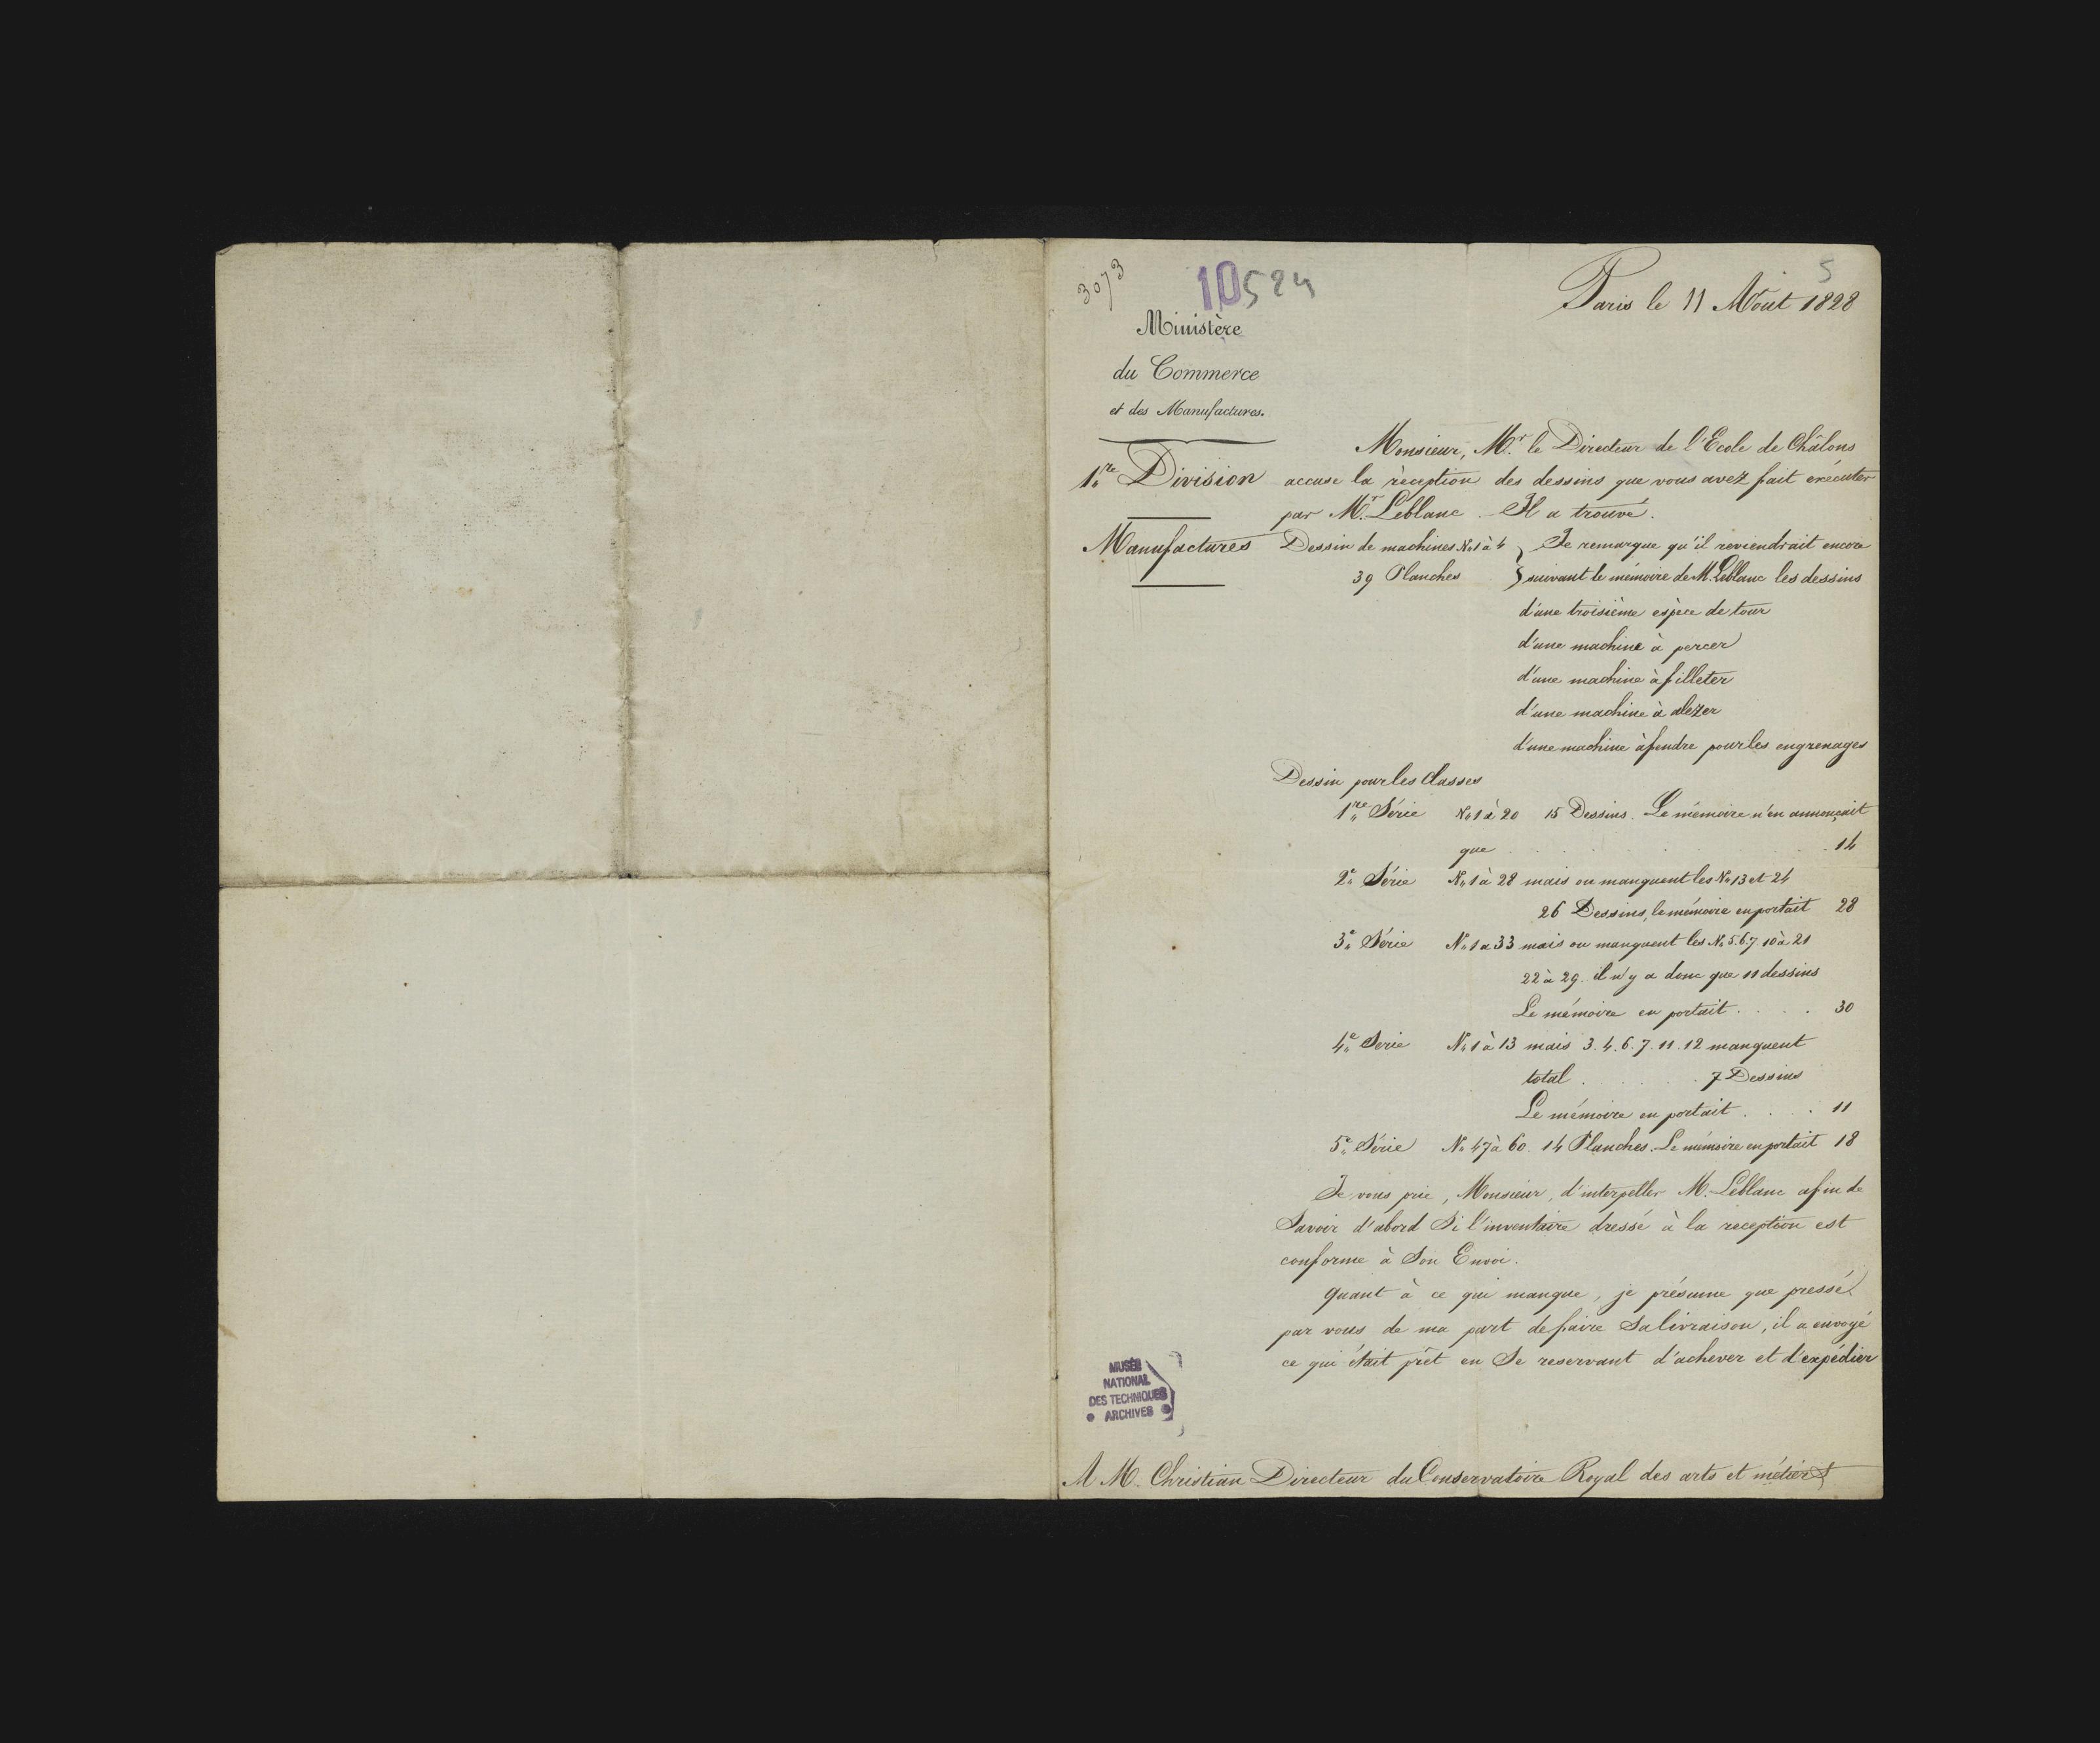 3073
10524
5
Paris le 11 Août 1828
Ministère
du Commerce
et des Manufactures.
1re Division
Manufactures
Monsieur, Mr. le Directeur de l'Ecole de Châlons
accuse la réception des dessins que vous avez fait exécuter
par Mr. Leblanc. Il a trouvé.
Dessin de machines No 1 à 4 } Je remarque qu'il reviendrait encore
39 Planches } suivant le mémoire de M. Leblanc les dessins
d'une troisième espèce de tour
d'une machine à percer
d'une machine à filleter
d'une machine à alezer
d'une machine à fendre pour les engrenages
Dessin pour les Classes
1re Série No 1 à 20 15 Dessins. Le mémoire n'en annonçait
que . . . . . . 14
2e Série No 1 à 28 mais ou manquent les No 13 et 24
26 Dessins, le mémoire en portait 28
3e Série No 1 a 33 mais ou manquent les No 5.6.7. 10 à 21
22 à 29. il n'y a donc que 11 dessins
Le mémoire en portait . . . . 30
4e Serie No 1 à 13 mais 3. 4. 6. 7. 11. 12 manquent
total . . . . 7 Dessins
Le mémoire en portait . . . 11
5e Série No 47 à 60. 14 Planches. Le mémoire en portait 18
Je vous prie, Monsieur, d'interpeller M. Leblanc afin de
Savoir d'abord Si l'inventaire dressé à la reception est
conforme à Son Envoi.
Quant à ce qui manque, je présume que pressé
par vous de ma part de faire Sa livraison, il a envoyé
ce qui était prêt en Se reservant d'achever et d'expédier
MUSÉE
NATIONAL
DES TECHNIQUES
ARCHIVES
A M. Christian Directeur du Conservatoire Royal des arts et métiers